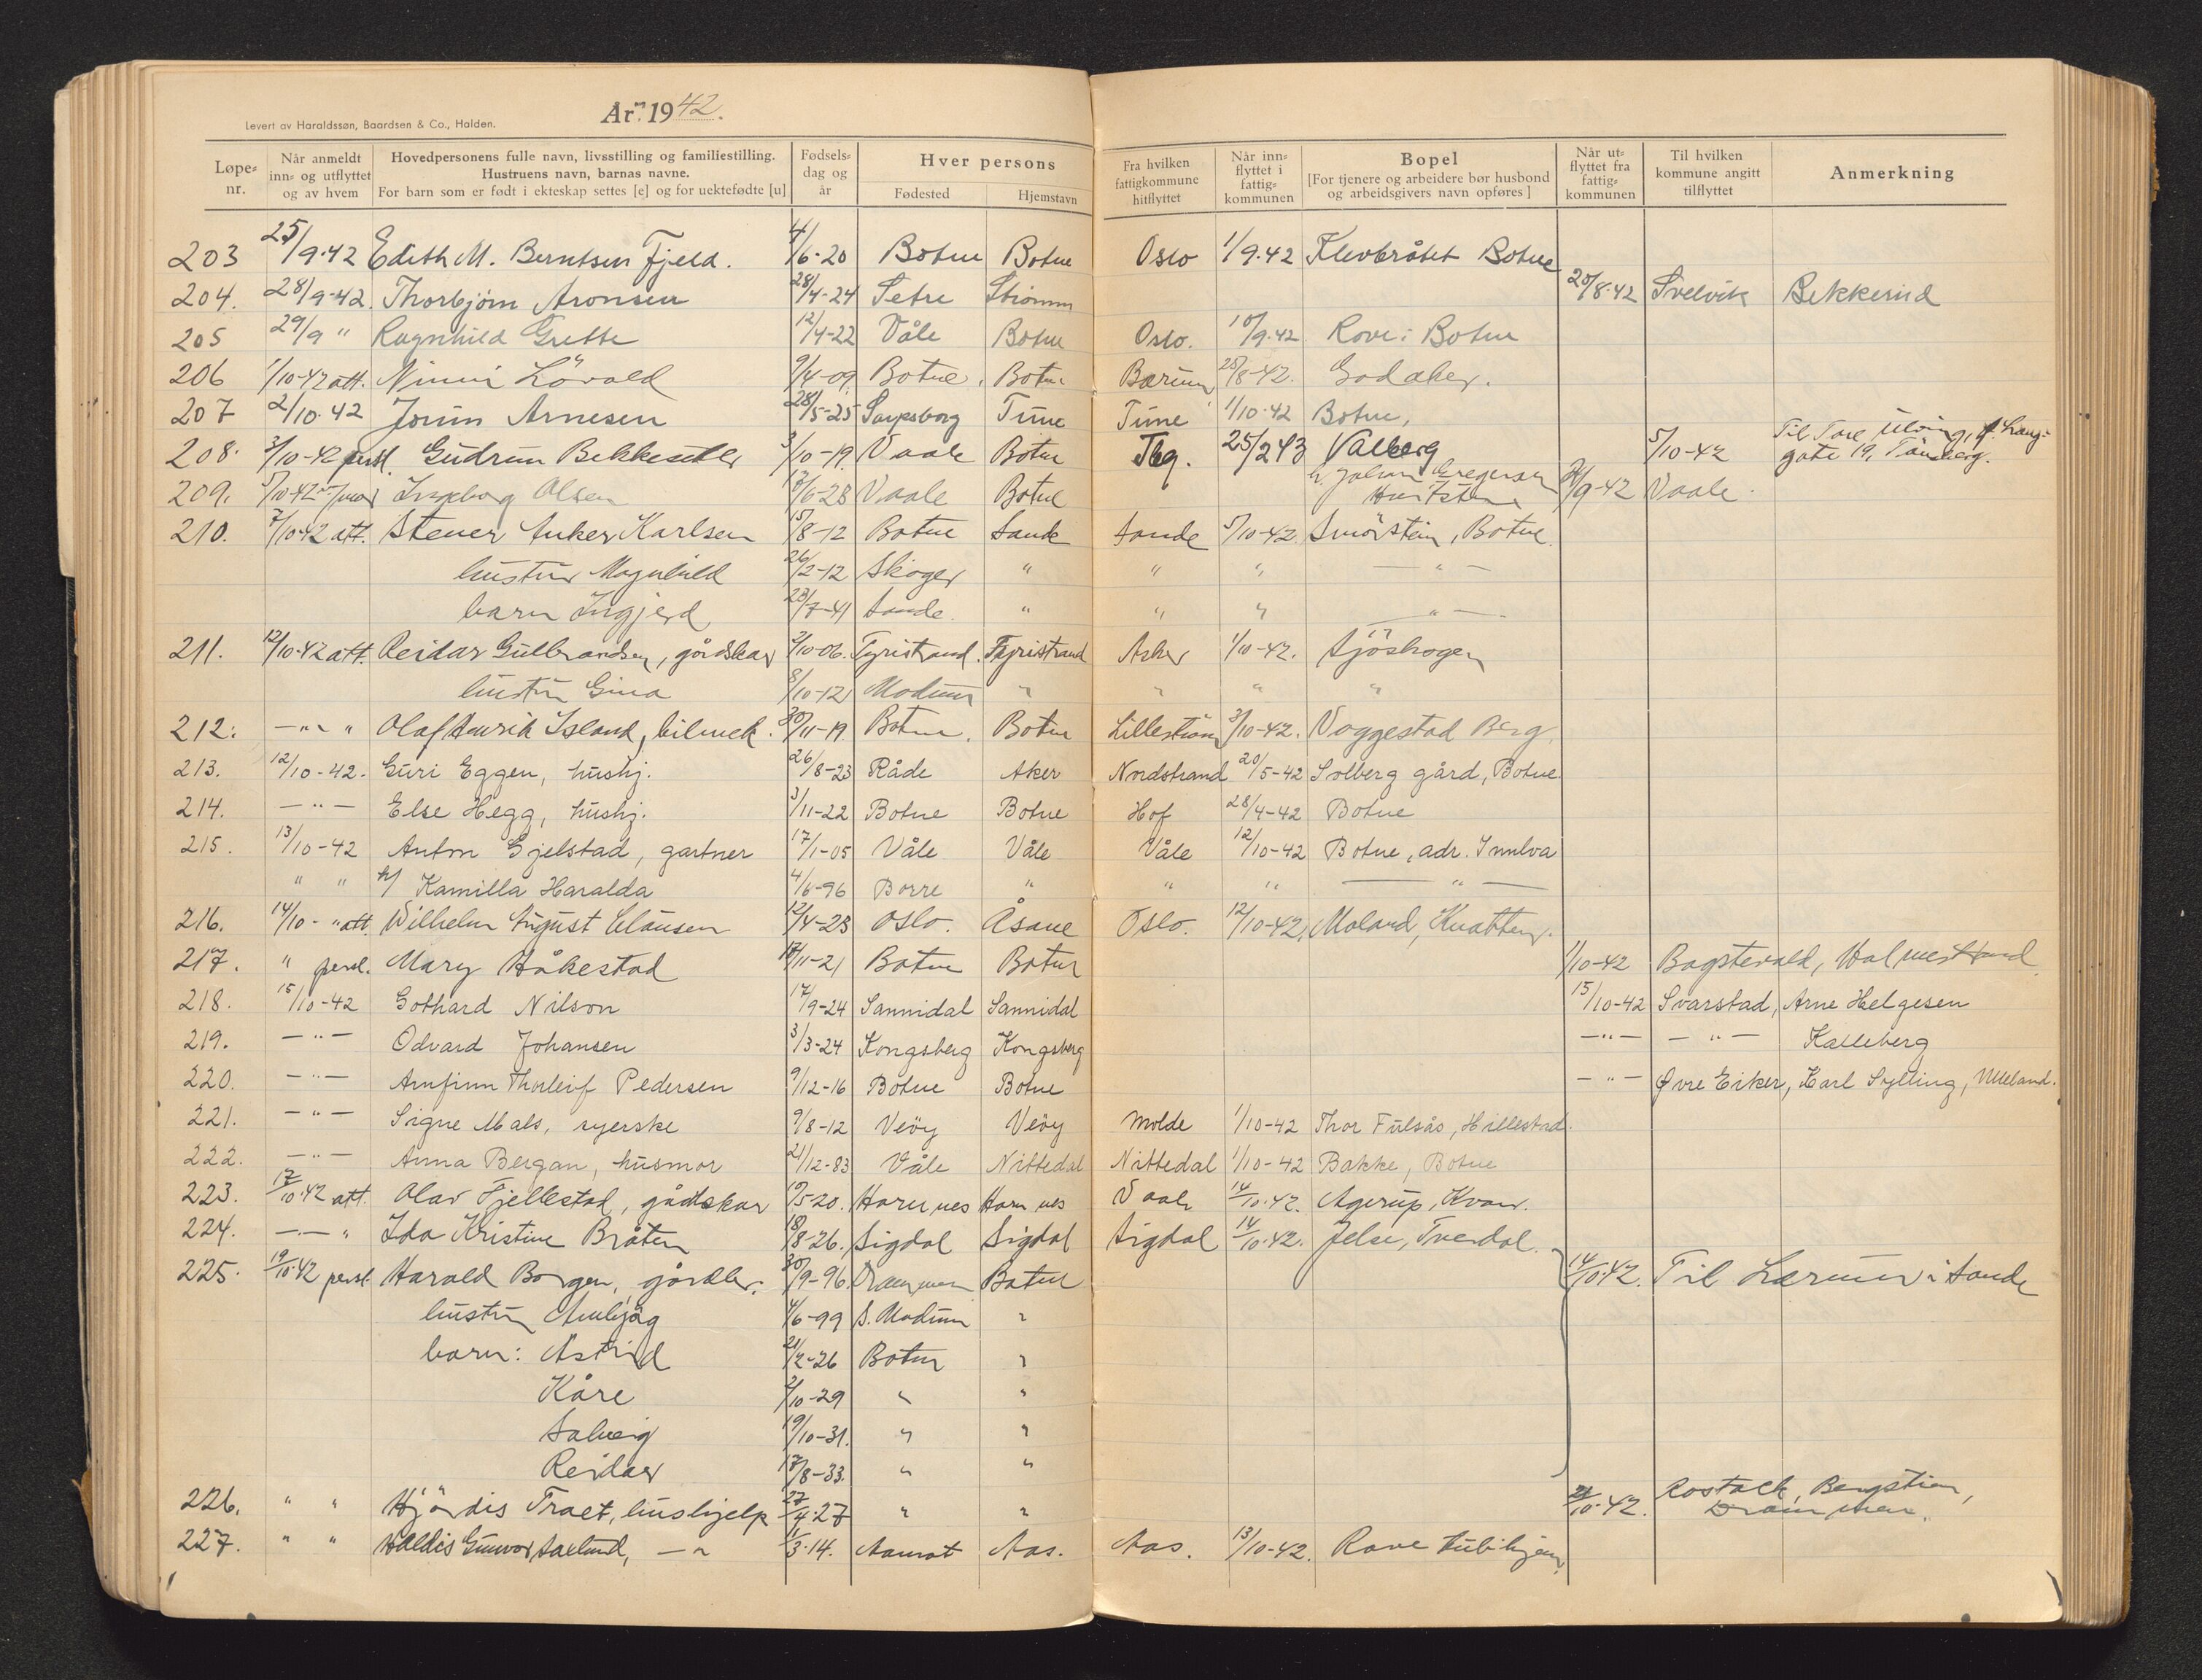 Levert av Haraldssøn, Baardsen & Co., Halden.
År 1942.
Løpe-nr. Når anmeldt inn- og utflyttet og av hvem Hovedpersonens fulle navn, livsstilling og familiestilling. Hustruens navn, barnas navne. For barn som er født i ekteskap settes [e] og for uektefødte [u] Fødsels-dag og år Hver persons Fødested Hjemstavn Fra hvilken fattigkommune hitflyttet Når inn-flyttet i fattig-kommunen Bopel [For tjenere og arbeidere bør husbond og arbeidsgivers navn opføres] Når ut-flyttet fra fattig-kommunen Til hvilken kommune angitt tilflyttet Anmerkning
203 25/9-42 Edith M. Berntsen Fjeld. 4/6-20 Botne Botne Oslo 1/9-42 Klevbråtet Botne
204. 28/9-42. Thorbjørn Aronsen 28/4-24 Setre Strømm 20/8-42 Svelvik Bekkerud
205 29/9 " Ragnhild Grette 12/4-22 Våle Botne Oslo. 10/9-42 Rove i Botne
206 1/10-42 att. Ninni Lövald 9/4-09 Botne. Botne Bærum 28/8-42. Godaker.
207 2/10-42 Jorun Arnesen 28/5-25 Sarpsborg Tune Tune 1/10-42 Botne.
208. 3/10-42 persl. Gudrun Bekkesetter 3/10-19. Vaale Botne Tbg. 25/2 43 Valberg 5/10-42 Til gate 19, Tønsberg.
209. 5/10-42 Ingeborg Olsen /6-28 Vaale Botne Johan Gregersen Hvitstein /9-42 Vaale.
210. 7/10-42 att. Stener Anker Karlsen 15/8-12 Botne Sande Sande 5/10-42. Smörstein, Botne.
hustru Magnhild 26/2-12 Skoger " " " — " —
barn Ingjerd 23/7-41 Sande. " " " — " —
211. 12/10-42 att. Reidar Gulbrandsen, gårdskar 2/10-06. Tyristrand. Tyristrand Asker 1/10-42. Sjöskogen
hustru Gina 8/10-12 Modum " " " "
212. — " — " Olaf Henrik Island, bilmek. 30/11-19. Botne. Botne Lillestrøm 3/10-42. Noggestad Berg.
213. 12/10-42. Guri Eggen, hushj. 26/8-23 Råde Aker Nordstrand 20/5-42 Solberg gård, Botne.
214. — " — Else Hegg, hushj. 3/11-22 Botne Botne Hof 28/4-42 Botne
215. 13/10-42 Anton Gjelstad, gartner 17/1-05 Våle Våle Våle 12/10-42 Botne, adr. Innlva
" " h/ Kamilla Haralda 4/6-96 Borre " " " — " —
216. 14/10- " att. Wilhelm August Clausen 12/4-23 Oslo. Åsane Oslo. 12/10-42. Moland, Knatten.
217. " persl. Mary Håkestad 18/11-21 Botne Botne 1/10-42 Bagstevold, Holmestrand
218. 15/10-42 Gothard Nilson 17/9-24 Sannidal Sannidal 15/10-42 Svarstad, Arne Helgesen
219. — " — Odvard Johansen 3/3-24 Kongsberg Kongsberg — " — — " — Kalleberg
220. — " — Arnfinn Thorleif Pedersen 9/12-16 Botne Botne — " — Øvre Eiker, Karl Sylling, Ulleland.
221. — " — Signe Mals, syerske 9/8-12 Veöy Veöy Molde 1/10-42 Thor Fulsås, Hillestad.
222. — " — Anna Bergan, husmor 21/12-83 Våle Nittedal Nittedal 1/10-42 Bakke, Botne
223. 17/10-42 att. Olav Fjellestad, gårdskar 10/5-20. Hornnes Hornnes Vaale 14/10-42. Agerup, Kvam.
224. — " — " Ida Kristine Bråten 18/8-26. Sigdal Sigdal Sigdal 14/10-42. Jelse, Tverdal.
225. 19/10-42 persl. Harald Borgen, gårdbr. 30/9-96 Drammen Botne 14/10-42. Til Lærum i Sande
hustru Annbjørg 4/6-99 S. Modum "
barn: Astrid 21/2-26 Botne "
Kåre 2/10-29 " "
Solveig 19/10-31. " "
Reidar 17/8-33. " "
226. " " Hjördis Traet, hushjelp 27/4-27 " " 21/10-42. Rostock, Bergstien, Drammen.
227. " " Haldis Gunvor Saxlund, — " 1/3-14. Aamot Aas. Aas. 13/10-42. Rove tubihjem.